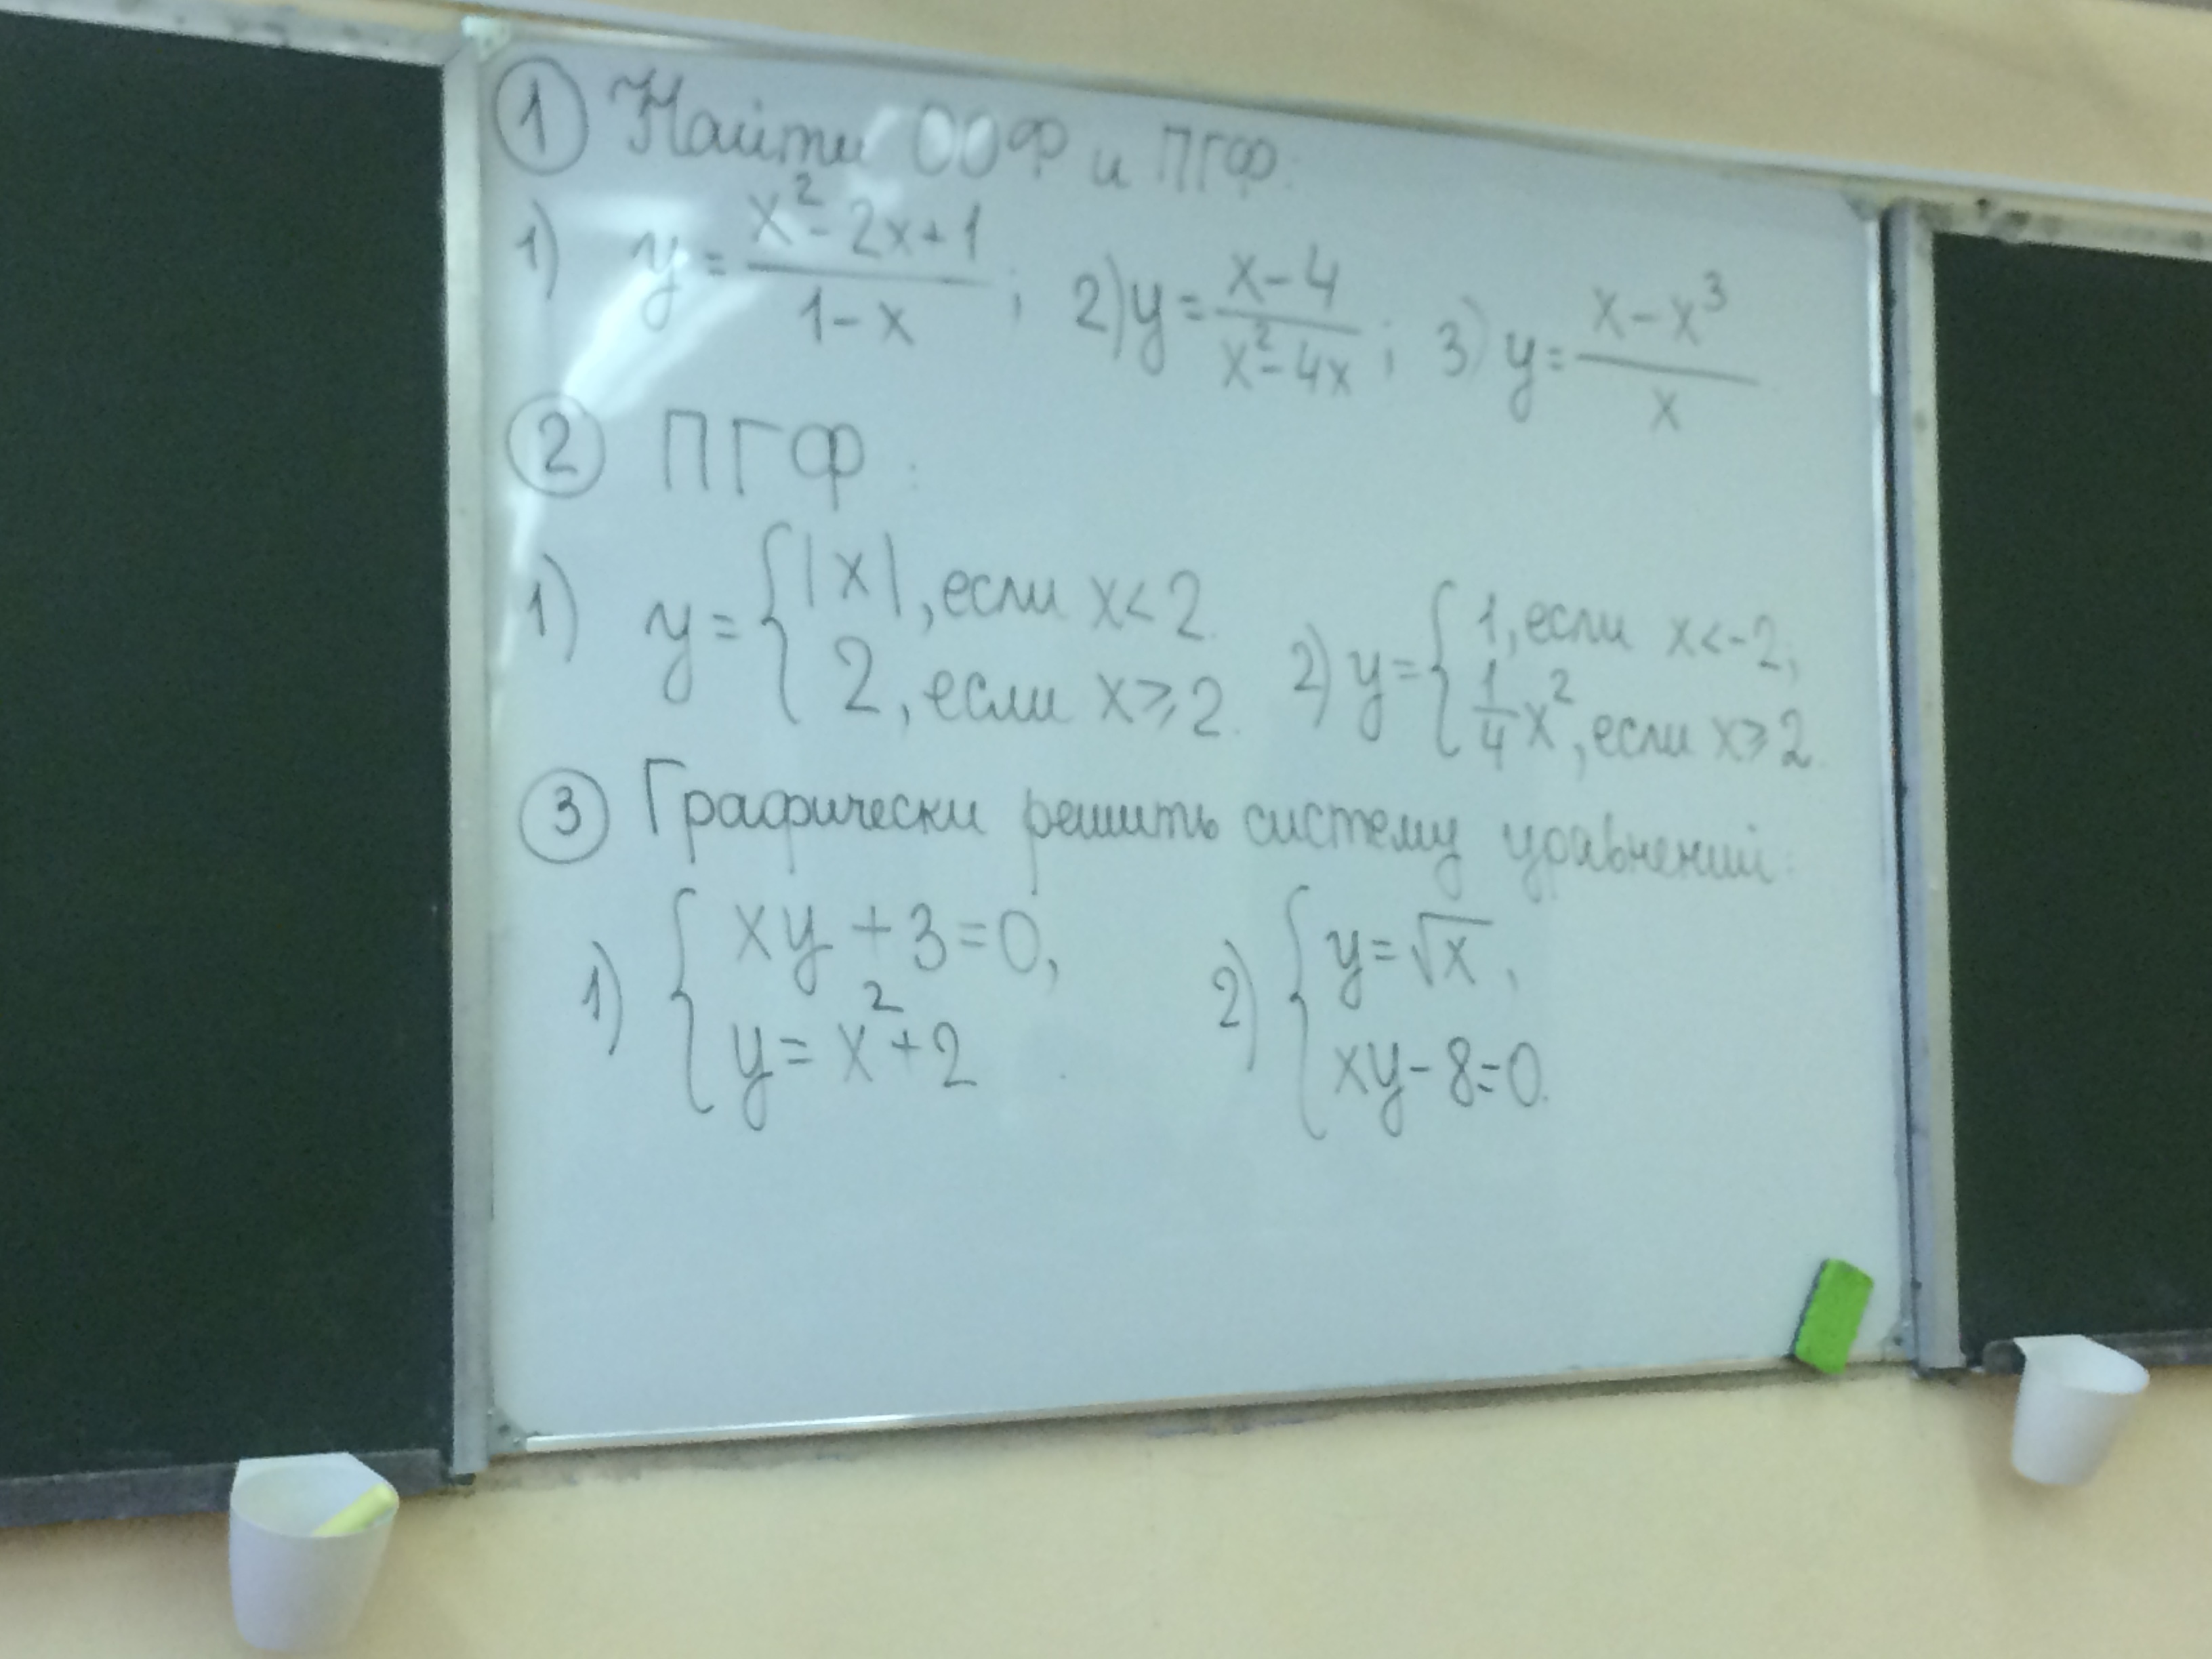 ① Найти ООФ и ПГФ:
1) y = (x² - 2x + 1)/(1 - x) ; 2) y = (x - 4)/(x² - 4x) ; 3) y = (x - x³)/x
② ПГФ :
1) y = { |x|, если x < 2
2, если x ⩾ 2.
2) y = { 1, если x < -2,
1/4 x², если x ⩾ 2.
③ Графически решить систему уравнений:
1) { xy + 3 = 0,
y = x² + 2
2) { y = √x,
xy - 8 = 0.